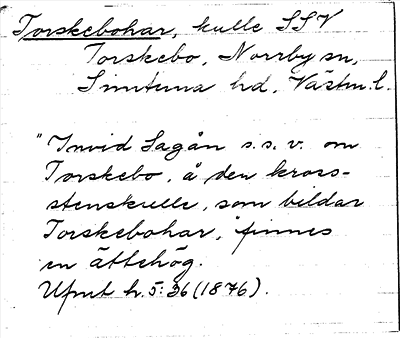 Torskebohar, kulle SSV
Torskebo, Norrby sn,
Simtuna hd, Västm. l.
"Invid Sagån s.s.v. om
Torskebo, å den kross-
stenskulle, som bildar
Torskebohar," finnes
en ättehög.
Ufmt h. 5: 36 (1876).